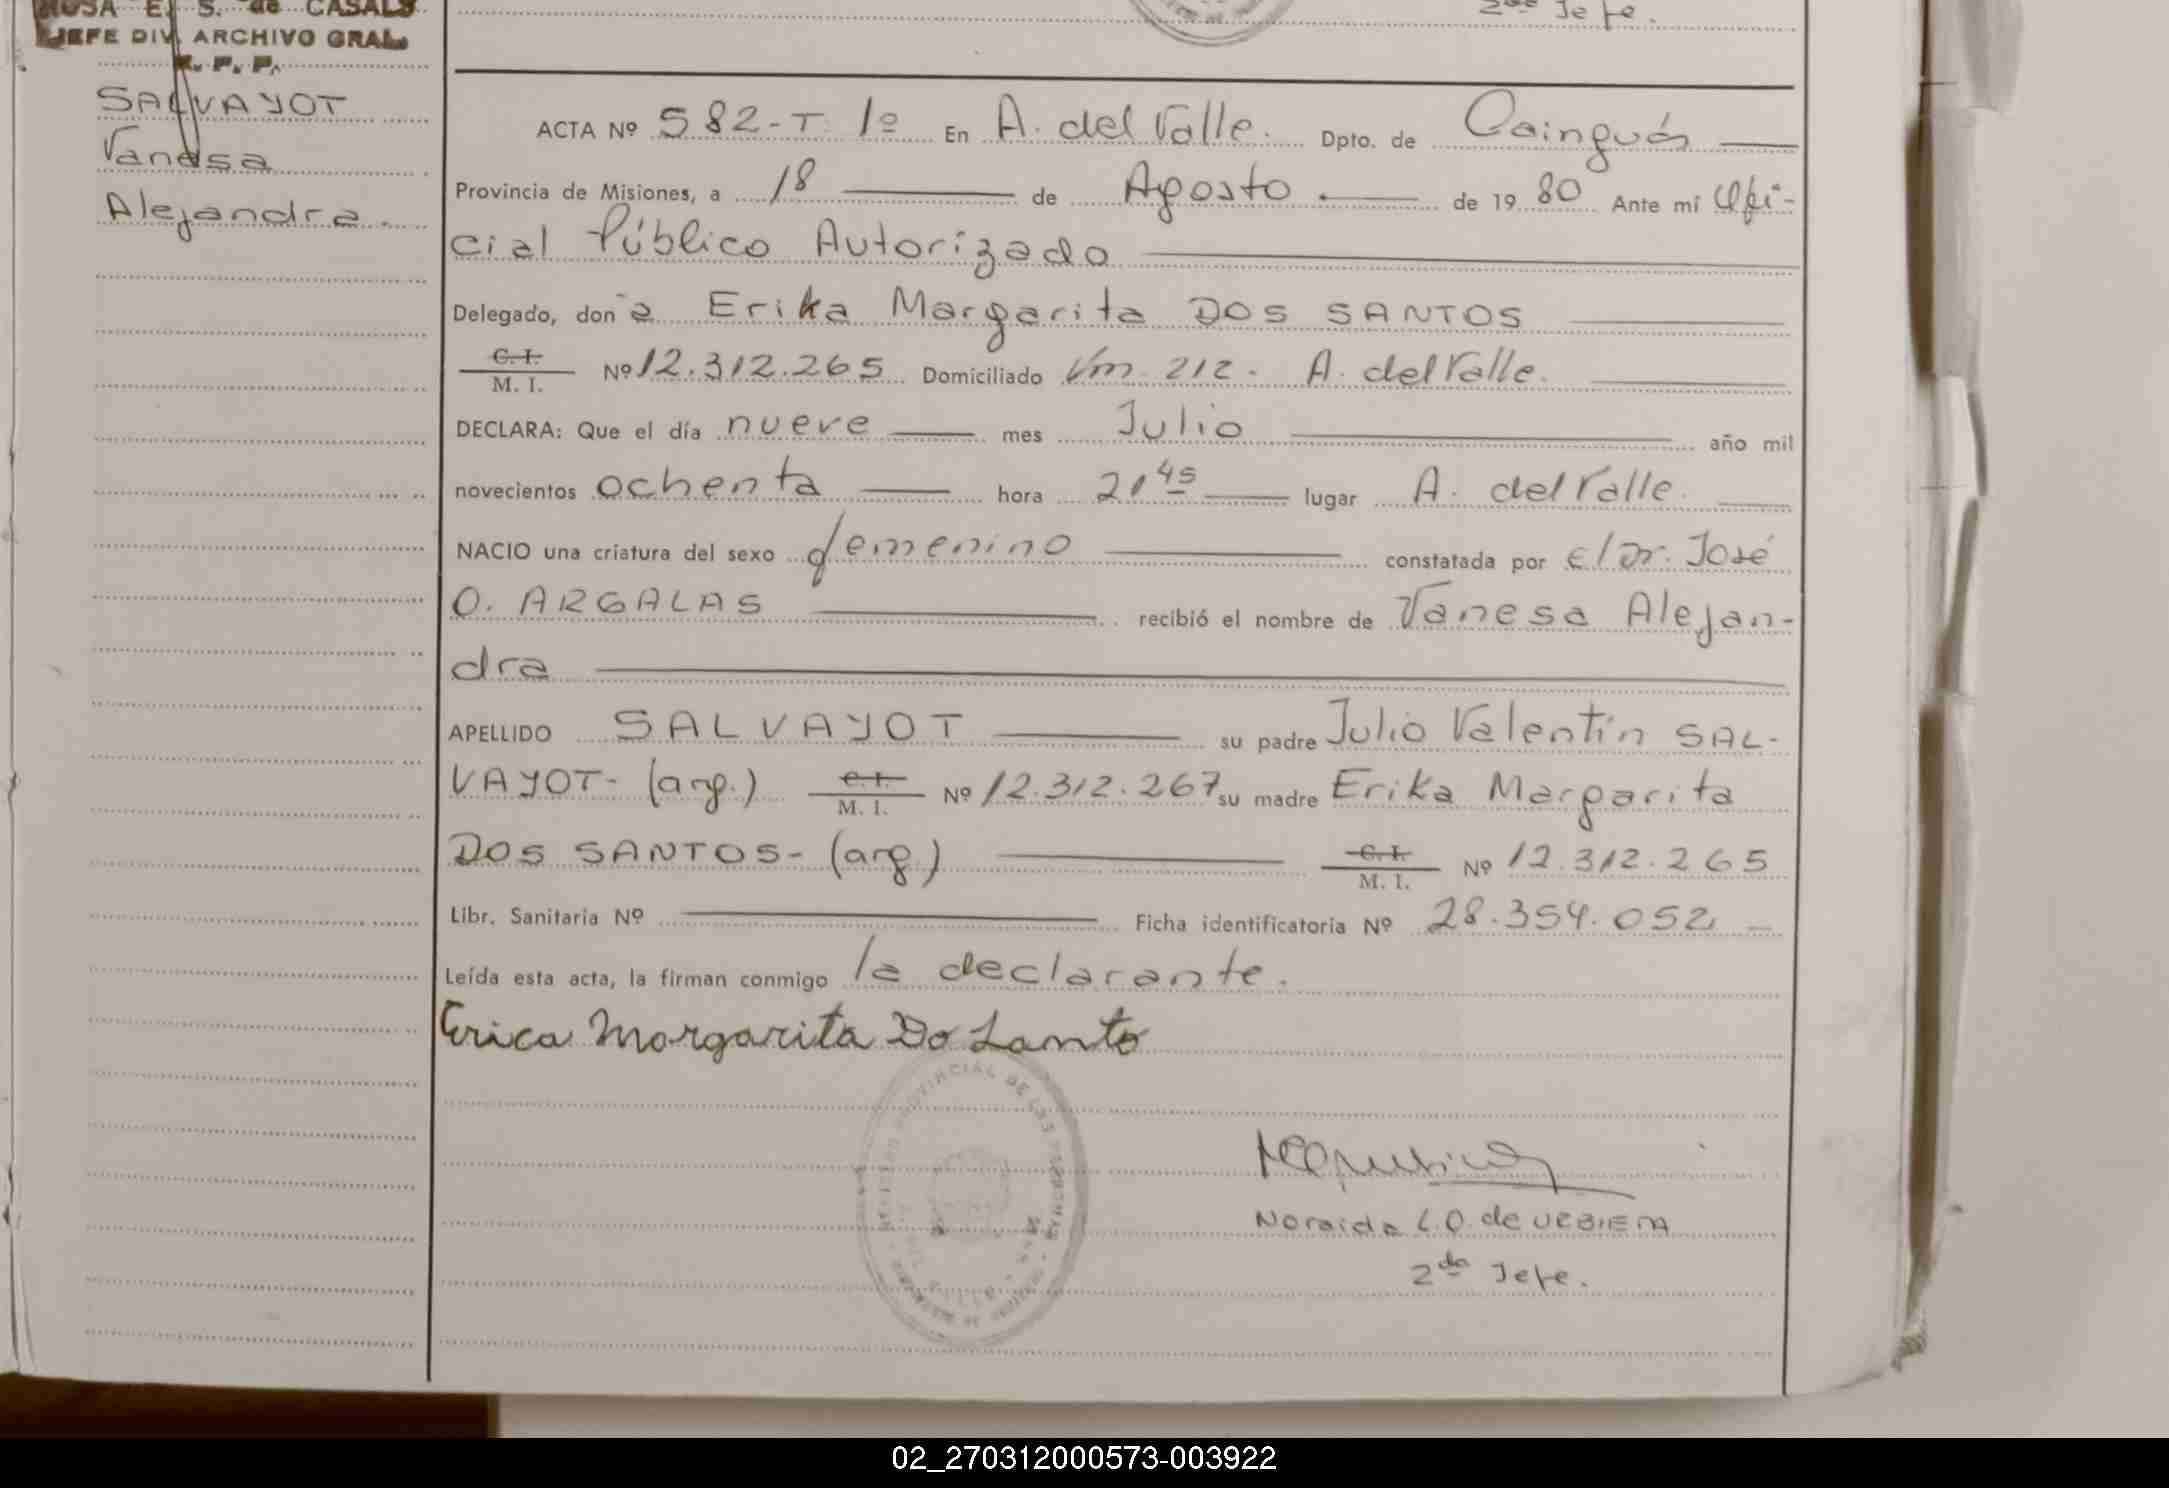 ROSA E. S. de CASALS
JEFE DIV. ARCHIVO GRAL.
R. P. P.
2da Jefe.
SALVAYOT
Vanesa
Alejandra.
ACTA Nº 582-T 1º En A. del Valle. Dpto. de Cainguás
Provincia de Misiones, a 18 de Agosto de 1980 Ante mí Ofi-
cial Público Autorizado
Delegado, doña Erika Margarita DOS SANTOS
C. I.
M. I. Nº 12.312.265 Domiciliado Km. 212. A. del Valle.
DECLARA: Que el día nueve mes Julio año mil
novecientos ochenta hora 21 45 lugar A. del Valle.
NACIO una criatura del sexo femenino constatada por el Dr. José
O. ARGALAS recibió el nombre de Vanesa Alejan-
dra
APELLIDO SALVAYOT su padre Julio Valentín SAL-
VAYOT- (arg.) C. I. M. I. Nº 12.312.267 su madre Erika Margarita
DOS SANTOS- (arg.) C. I. M. I. Nº 12.312.265
Libr. Sanitaria Nº Ficha identificatoria Nº 28.354.052
Leída esta acta, la firman conmigo la declarante.
Erica Margarita Do Santo
REGISTRO PROVINCIAL DE LAS PERSONAS
Noraida L. O. de
2da Jefe.
02_270312000573-003922